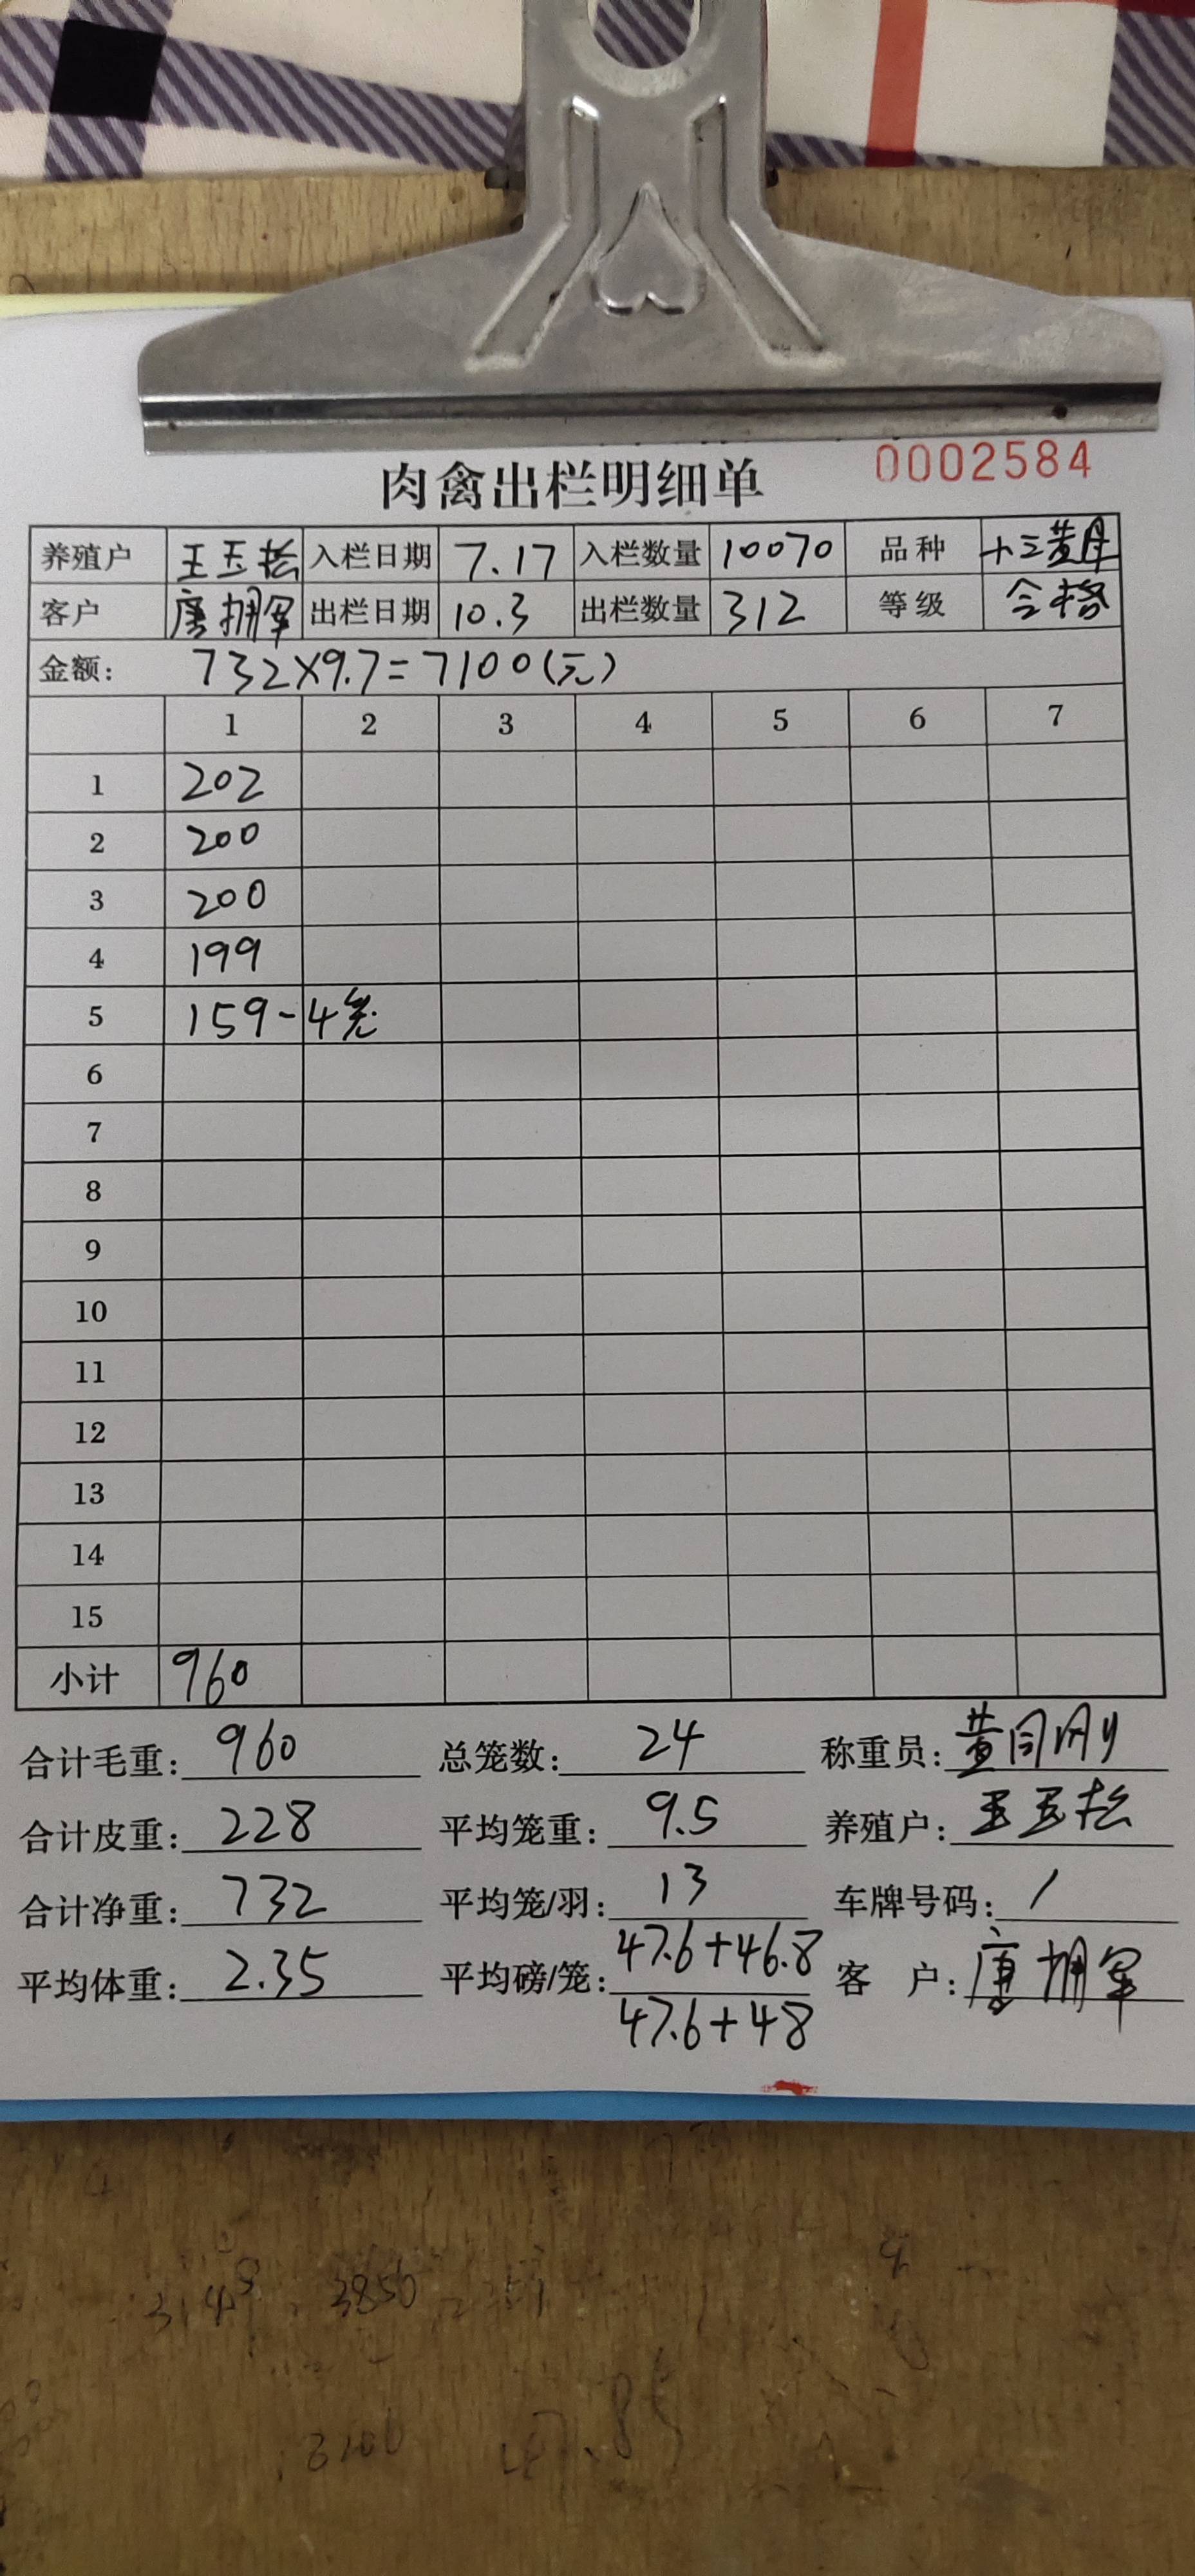 肉禽出栏明细单 0002584
养殖户 王玉松 入栏日期 7.17 入栏数量 10070 品种 十三黄母
客户 唐拥军 出栏日期 10.3 出栏数量 312 等级 合格
金额: 732×9.7=7100(元)
1 2 3 4 5 6 7
1 202
2 200
3 200
4 199
5 159-4笼
6
7
8
9
10
11
12
13
14
15
小计 960
合计毛重: 960 总笼数: 24 称重员: 黄同刚
合计皮重: 228 平均笼重: 9.5 养殖户: 王玉松
合计净重: 732 平均笼/羽: 13 车牌号码: /
平均体重: 2.35 平均磅/笼: 47.6+46.8 客 户: 唐拥军
47.6+48
3850
3100